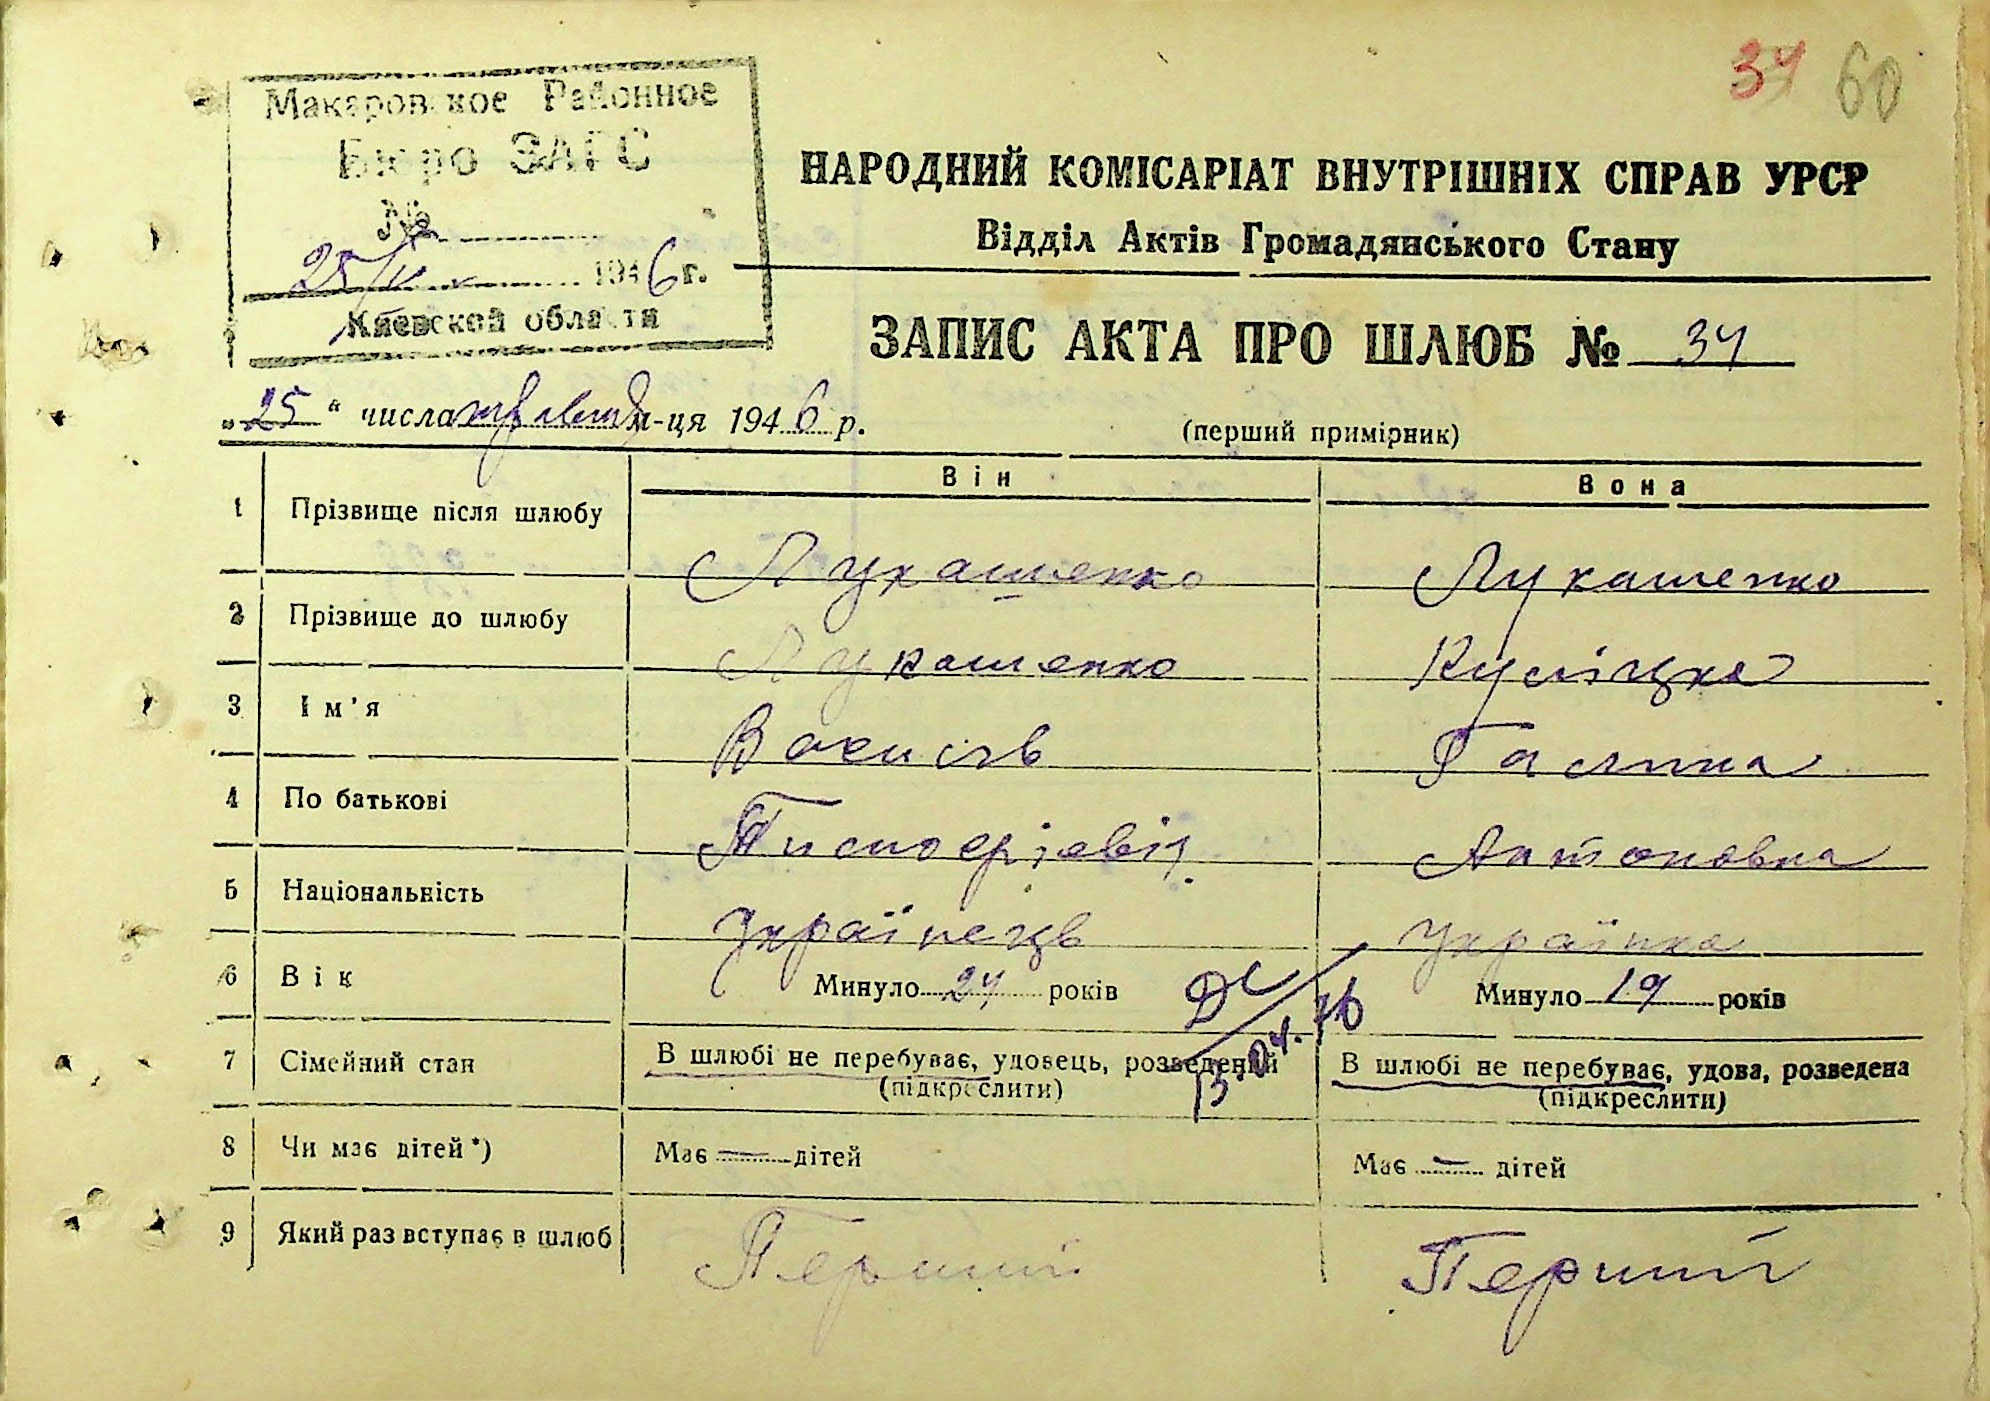 34 60
Макаровское Районное
Бюро ЗАГС
№
25/IV 1946 г.
Киевской области
НАРОДНИЙ КОМІСАРІАТ ВНУТРІШНІХ СПРАВ УРСР
Відділ Актів Громадянського Стану
ЗАПИС АКТА ПРО ШЛЮБ № 34
„25“ числа м-ця 1946 р.
(перший примірник)
Він Вона
1 Прізвище після шлюбу Лукашенко Лукашенко
2 Прізвище до шлюбу Лукашенко
3 Ім'я Василь Галина
4 По батькові Антоновна
5 Національність Українець Українка
6 Вік Минуло 24 років Минуло 19 років
7 Сімейний стан В шлюбі не перебуває, удовець, розведений В шлюбі не перебуває, удова, розведена
(підкреслити) (підкреслити)
8 Чи має дітей*) Має — дітей Має — дітей
9 Який раз вступає в шлюб Перший Перший